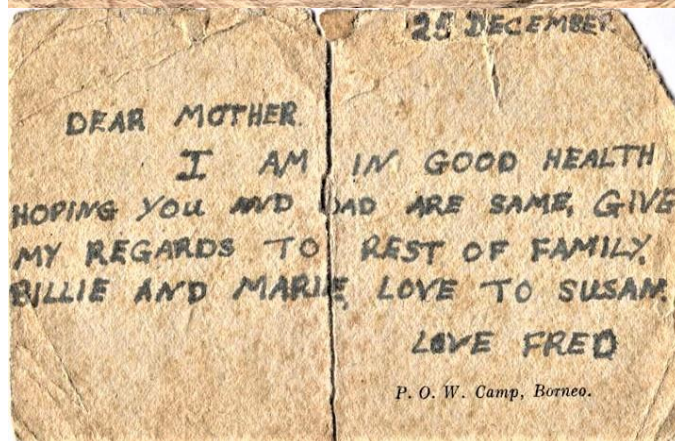 25 DECEMBER.
DEAR MOTHER.
I AM IN GOOD HEALTH
HOPING YOU AND DAD ARE SAME, GIVE
MY REGARDS TO REST OF FAMILY.
BILLIE AND MARIE, LOVE TO SUSAN.
LOVE FRED
P. O. W. Camp, Borneo.